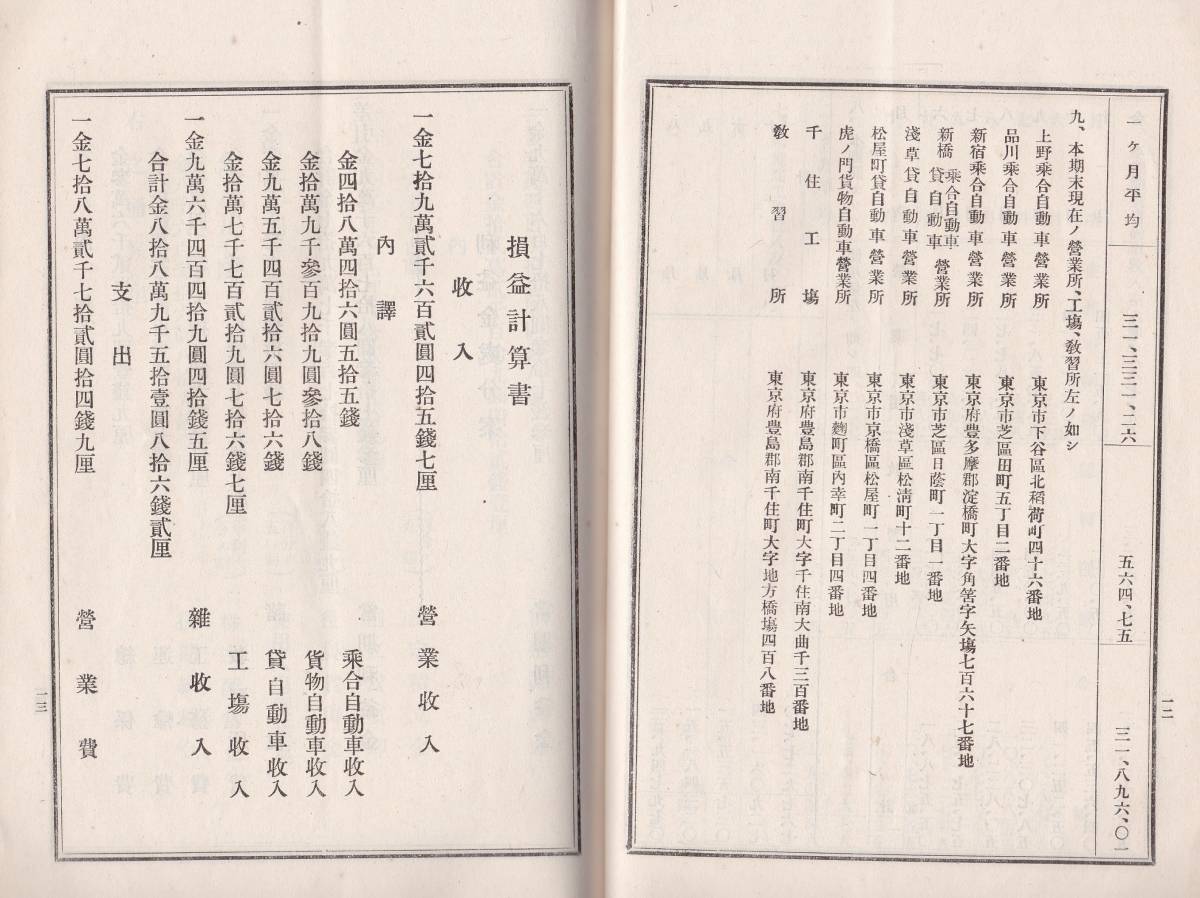 一ヶ月平均 三一、三三一、二六 五六四、七五 三一、八九六、〇一
九、本期末現在ノ營業所、工塲、敎習所左ノ如シ
上野乘合自動車營業所 東京市下谷區北稻荷町四十六番地
品川乘合自動車營業所 東京市芝區田町五丁目二番地
新宿乘合自動車營業所 東京府豊多摩郡淀橋町大字角筈字矢塲七百六十七番地
新橋乘合自動車貸自動車營業所 東京市芝區日蔭町一丁目一番地
淺草貸自動車營業所 東京市淺草區松淸町十二番地
松屋町貸自動車營業所 東京市京橋區松屋町一丁目四番地
虎ノ門貨物自動車營業所 東京市麴町區內幸町二丁目四番地
千住工塲 東京府豊島郡南千住町大字千住南大曲千三百番地
敎習所 東京府豊島郡南千住町大字地方橋塲四百八番地
一二
損益計算書
收入
一金七拾九萬貳千六百貳圓四拾五錢七厘 營業收入
內譯
金四拾八萬四拾六圓五拾五錢 乘合自動車收入
金拾萬九千參百九拾九圓參拾八錢 貨物自動車收入
金九萬五千四百貳拾六圓七拾六錢 貸自動車收入
金拾萬七千七百貳拾九圓七拾六錢七厘 工塲收入
一金九萬六千四百四拾九圓四拾錢五厘 雜收入
合計金八拾八萬九千五拾壹圓八拾六錢貳厘
支出
一金七拾八萬貳千七拾貳圓拾四錢九厘 營業費
一三